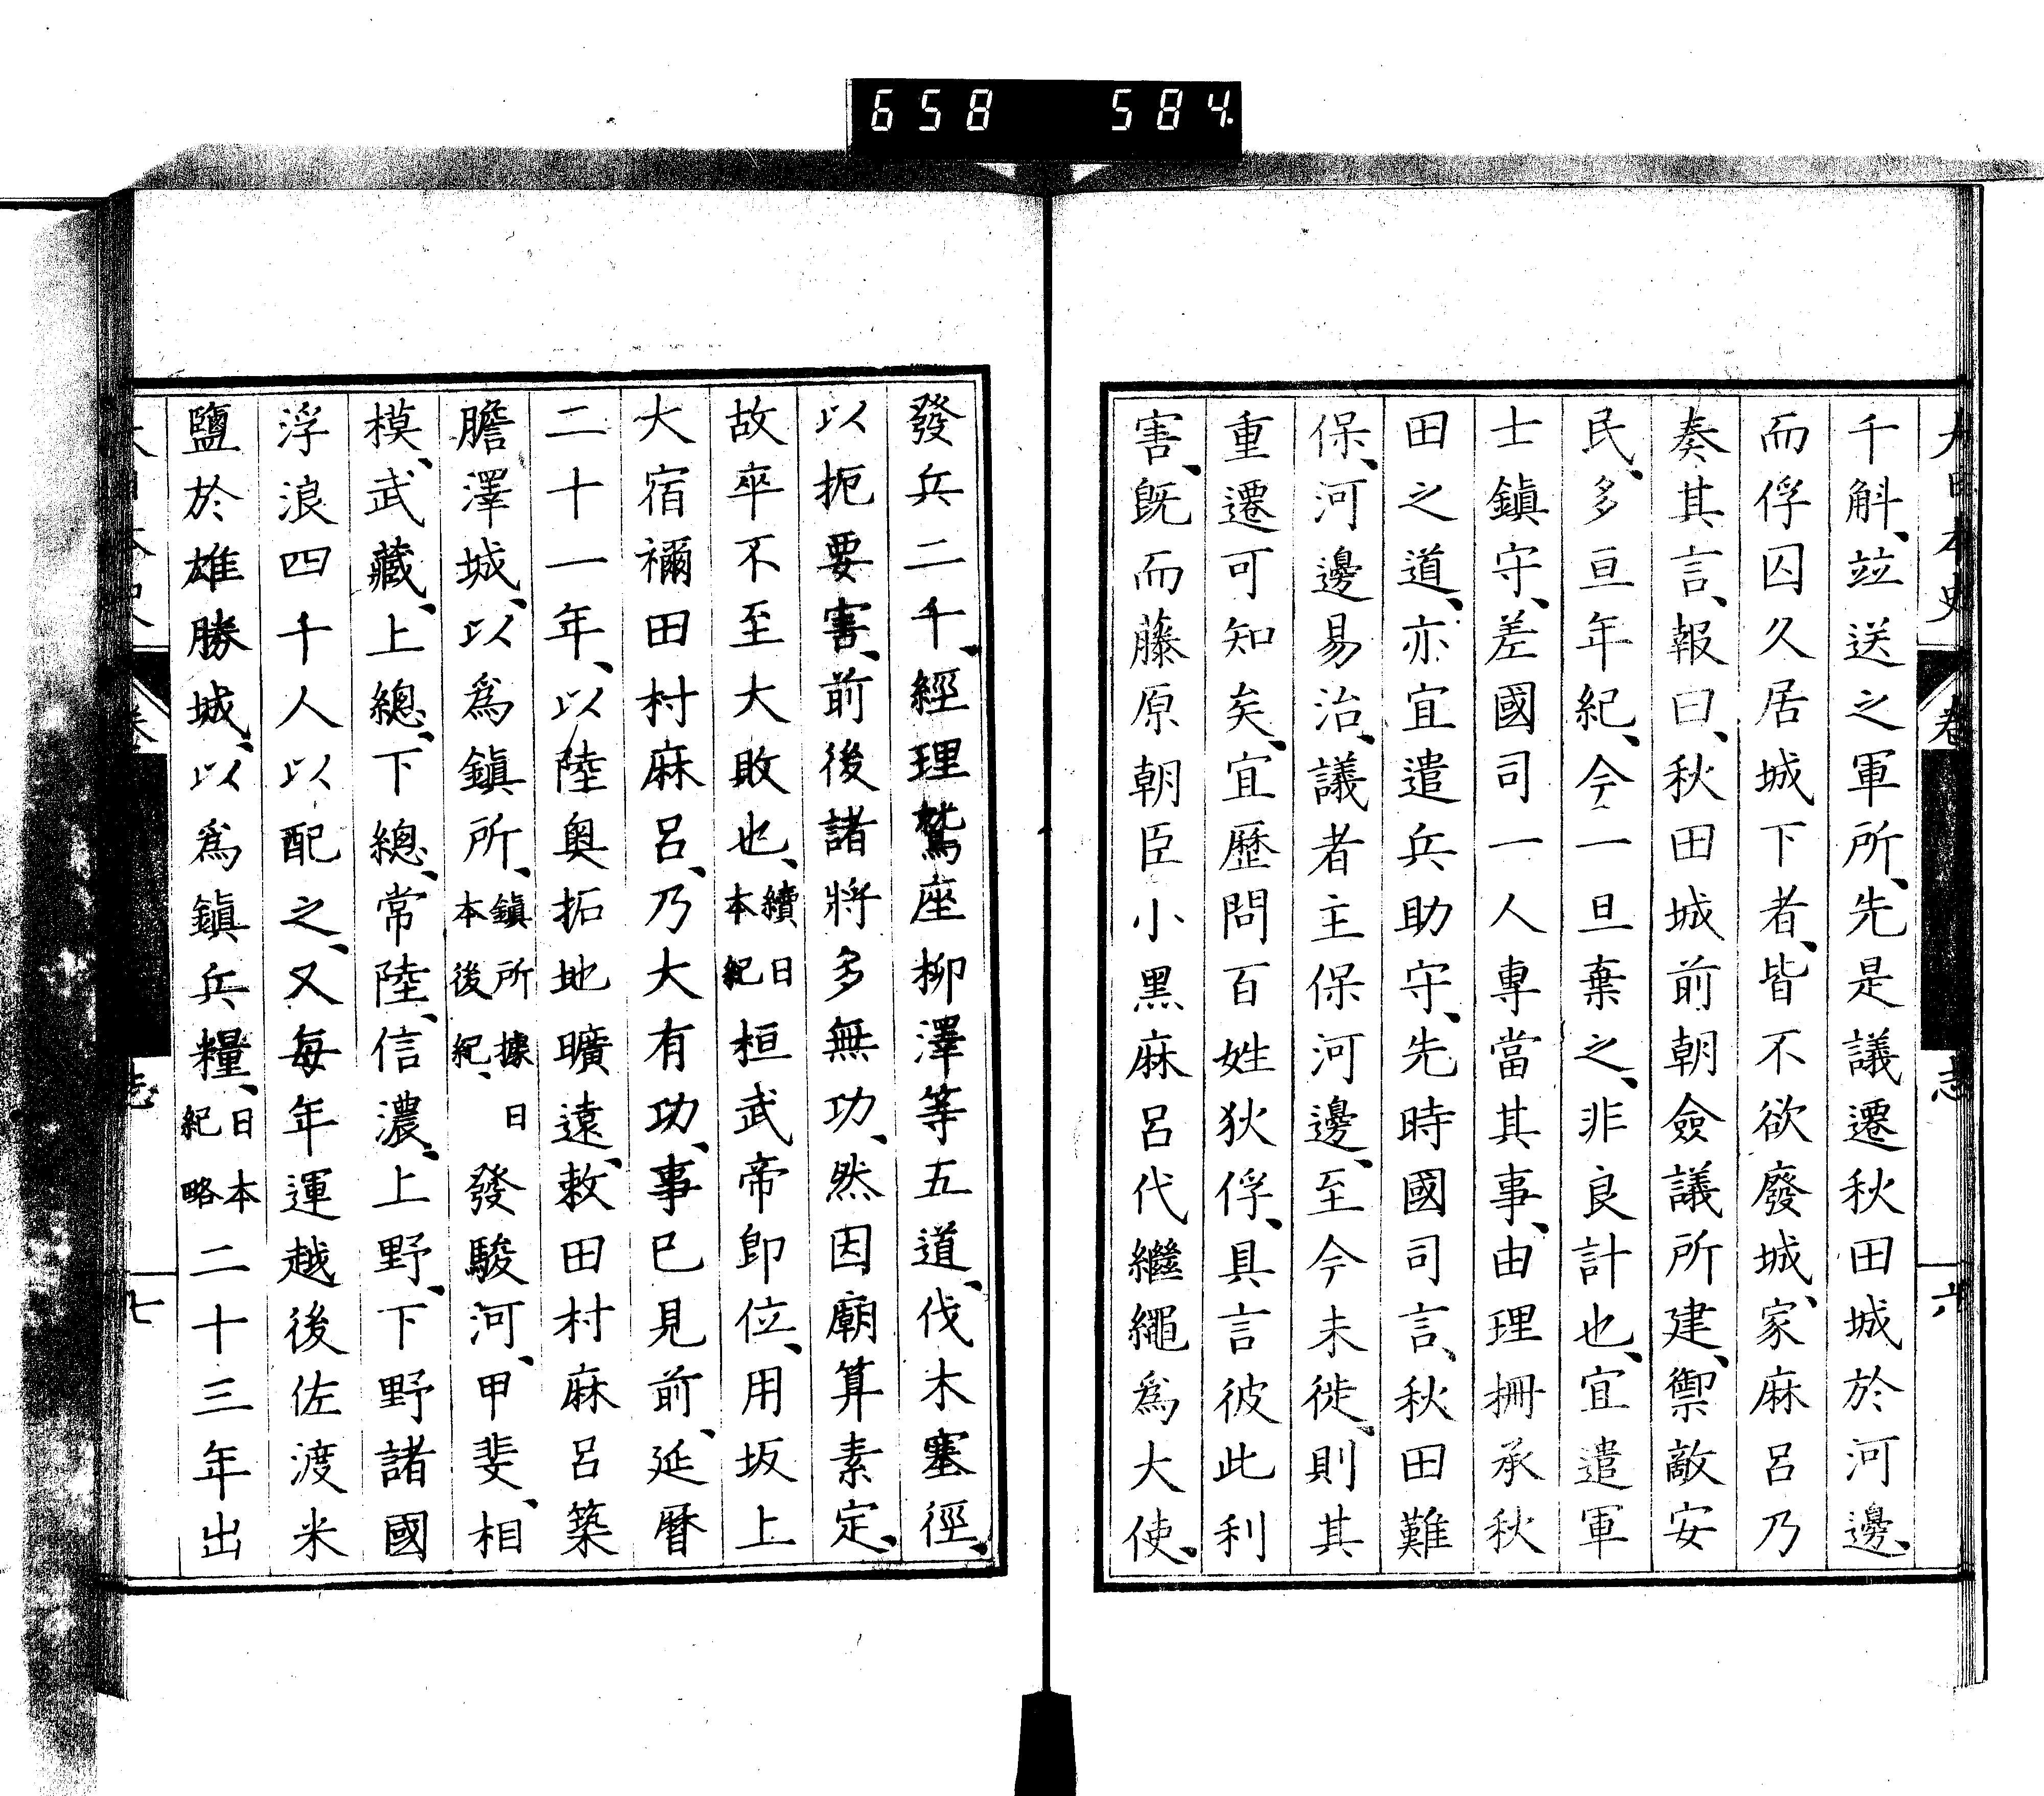 658 584.
大日本史 卷 志 六
千斛、竝送之軍所、先是議遷秋田城於河邊、
而俘囚久居城下者、皆不欲廢城、家麻呂乃
奏其言、報曰、秋田城前朝僉議所建、禦敵安
民、多亘年紀、今一旦棄之、非良計也、宜遣軍
士鎭守、差國司一人專當其事、由理柵承秋
田之道、亦宜遣兵助守、先時國司言、秋田難
保、河邊易治、議者主保河邊、至今未徙、則其
重遷可知矣、宜歷問百姓狄俘、具言彼此利
害、既而藤原朝臣小黑麻呂代繼繩爲大使、
發兵二千、經理鷲座柳澤等五道、伐木塞徑、
以扼要害、前後諸將多無功、然因廟算素定、
故卒不至大敗也、續日本紀桓武帝卽位、用坂上
大宿禰田村麻呂、乃大有功、事已見前、延曆
二十一年、以陸奧拓地曠遠、敕田村麻呂築
膽澤城、以爲鎭所、鎭所據日本後紀、發駿河、甲斐、相
模、武藏、上總、下總、常陸、信濃、上野、下野諸國
浮浪四千人以配之、又每年運越後佐渡米
鹽於雄勝城、以爲鎭兵糧、日本紀略二十三年出
卷 志 七